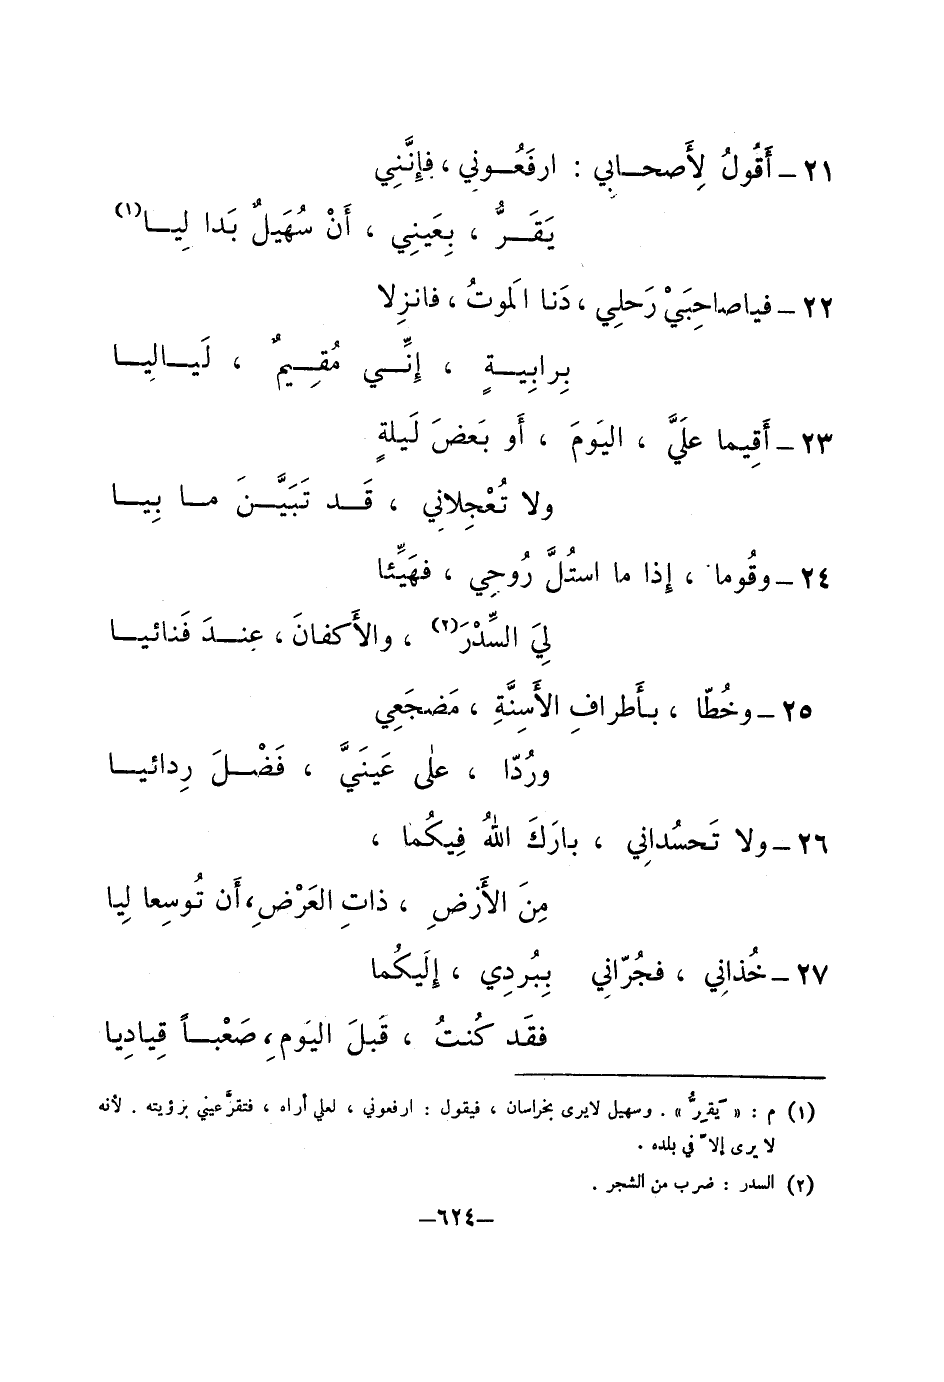 ٢١ ـ أَقُولُ لِأَصحـابي : ارفَعُـوني ، فإنَّنِي
يَقَـرُّ ، بِعَينِي ، أَنْ سُهَيلٌ بَدا لِيـا(١)
٢٢ ـ فياصاحِبَيْ رَحلِي ، دَنا المَوتُ ، فانزِلا
بِرابِيـةٍ ، إنِّـي مُقِـيمٌ ، لَيـالِيـا
٢٣ ـ أَقِيما علَيَّ ، اليَومَ ، أَو بَعضَ لَيلةٍ
ولا تُعْجِلاني ، قَـد تَبَيَّـنَ مـا بِيـا
٢٤ ـ وقُوما ، إذا ما استُلَّ رُوحِي ، فهَيِّئا
لِيَ السِّدْرَ(٢) ، والأَكفانَ ، عِنـدَ فَنائيـا
٢٥ ـ وخُطّا ، بـأَطرافِ الأَسِنَّةِ ، مَضجَعِي
ورُدّا ، علٰى عَينَيَّ ، فَضْـلَ رِدائيـا
٢٦ ـ ولا تَحسُداني ، بارَكَ اللهُ فِيكُما ،
مِنَ الأَرضِ ، ذاتِ العَرْضِ ، أَن تُوسِعا لِيا
٢٧ ـ خُذانِي ، فجُرّانِي بِبُردِي ، إلَيكُما
فقَد كُنتُ ، قَبلَ اليَومِ ، صَعْبـاً قِيادِيا
(١) م : « يَقِرُّ » . وسهيل لايرى بخراسان ، فيقول : ارفعوني ، لعلي أراه ، فتقرَّ عيني برؤيته . لأنه
لا يرى إلاّ في بلده .
(٢) السدر : ضرب من الشجر .
ـ ٦٢٤ ـ